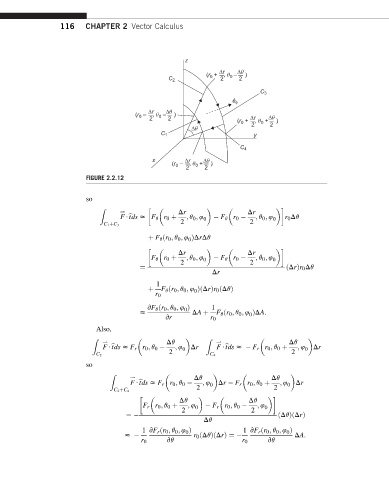 116 CHAPTER 2 Vector Calculus
z
C₂
(r₀ + Δr/2, θ₀ − Δθ/2)
C₃
(r₀ − Δr/2, θ₀ − Δθ/2)
(r₀ + Δr/2, θ₀ + Δθ/2)
Δθ
C₁
y
C₄
x
(r₀ − Δr/2, θ₀ + Δθ/2)
FIGURE 2.2.12
so
∫_{C₁+C₃} F⃗ · i⃗ds ≈ [F_θ(r₀ + Δr/2, θ₀, φ₀) − F_θ(r₀ − Δr/2, θ₀, φ₀)] r₀Δθ
+ F_θ(r₀, θ₀, φ₀)ΔrΔθ
= [F_θ(r₀ + Δr/2, θ₀, φ₀) − F_θ(r₀ − Δr/2, θ₀, φ₀)]/Δr (Δr)r₀Δθ
+ 1/r₀ F_θ(r₀, θ₀, φ₀)(Δr)r₀(Δθ)
≈ ∂F_θ(r₀, θ₀, φ₀)/∂r ΔA + 1/r₀ F_θ(r₀, θ₀, φ₀)ΔA.
Also,
∫_{C₂} F⃗ · i⃗ds ≈ F_r(r₀, θ₀ − Δθ/2, φ₀)Δr ∫_{C₄} F⃗ · i⃗ds ≈ − F_r(r₀, θ₀ + Δθ/2, φ₀)Δr
so
∫_{C₂+C₄} F⃗ · i⃗ds ≃ F_r(r₀, θ₀ − Δθ/2, φ₀)Δr − F_r(r₀, θ₀ + Δθ/2, φ₀)Δr
= − [F_r(r₀, θ₀ + Δθ/2, φ₀) − F_r(r₀, θ₀ − Δθ/2, φ₀)]/Δθ (Δθ)(Δr)
≈ − 1/r₀ ∂F_r(r₀, θ₀, φ₀)/∂θ r₀(Δθ)(Δr) = − 1/r₀ ∂F_r(r₀, θ₀, φ₀)/∂θ ΔA.